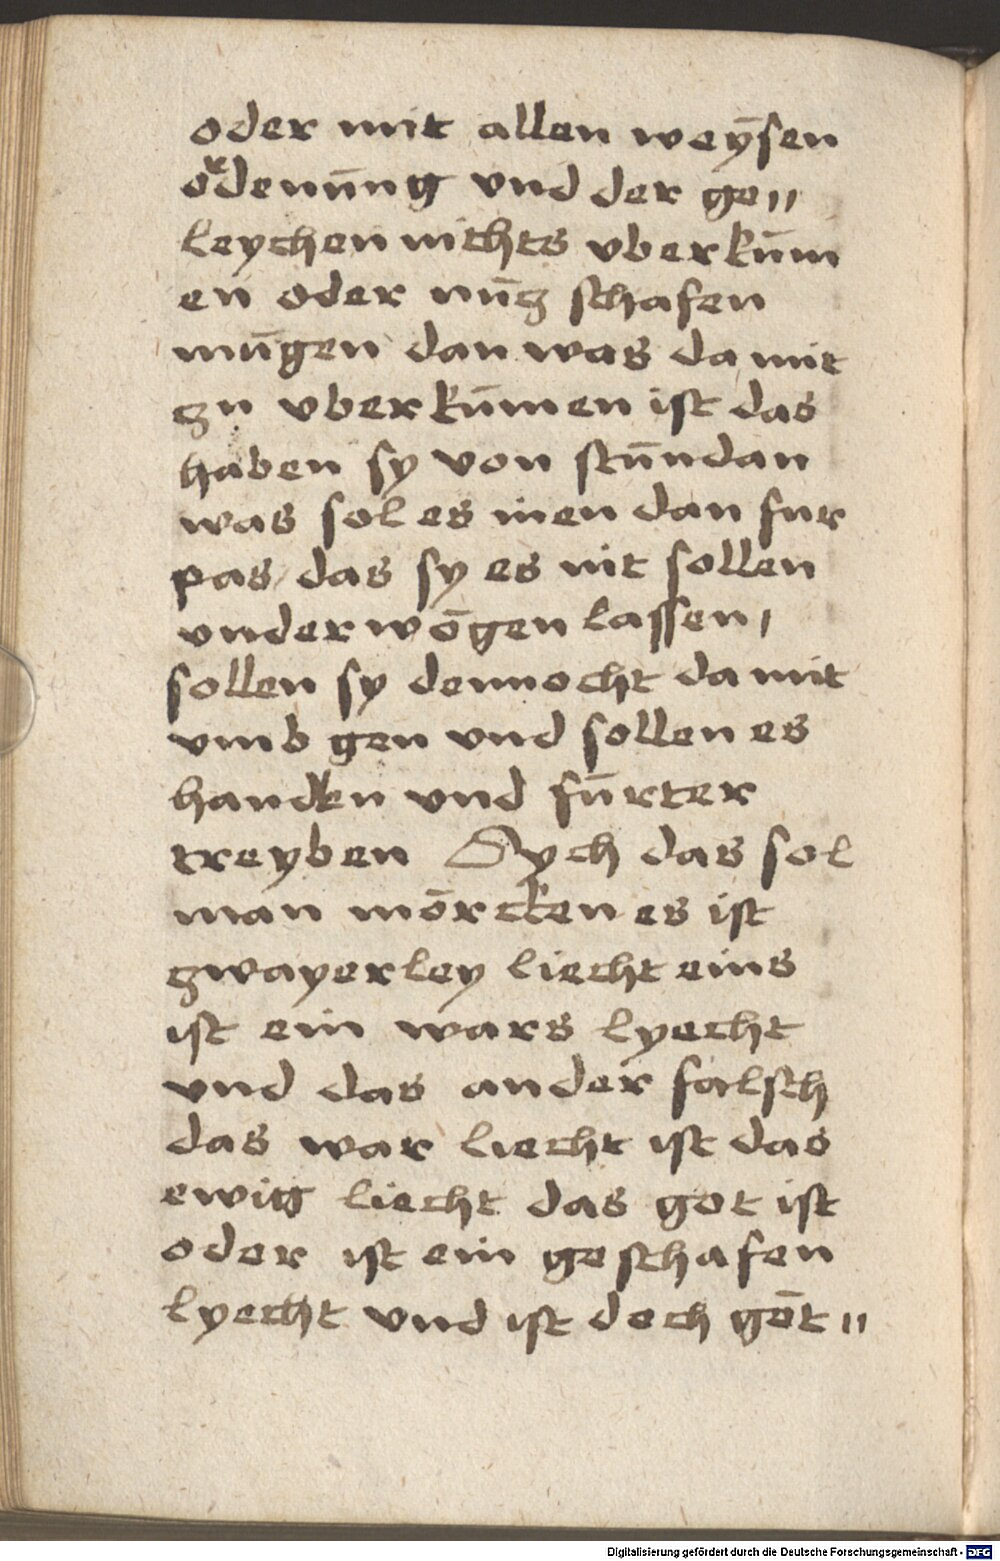 oder mit allen weÿsen
oͤdenūng vnd der ge〃
leychen nichts vberkūm
en oder nūcz schafen
mūgen dan was da mit
zu vberkūmen ist das
haben sy von stūndan
was sol es inen dan fur
pas das sy es nit sollen
vnderwōgen lassen /
sollen sy dennocht da mit
vmb gen vnd sollen es
handlen vnd fūrter
treyben Sych das sol
man mōrcken es ist
zwayerley liecht eins
ist ein wars lyecht
vnd das ander falsch
das war liecht ist das
ewig liecht das got ist
oder ist ein geschafen
lyecht vnd ist doch gōt〃
Digitalisierung gefördert durch die Deutsche Forschungsgemeinschaft - DFG